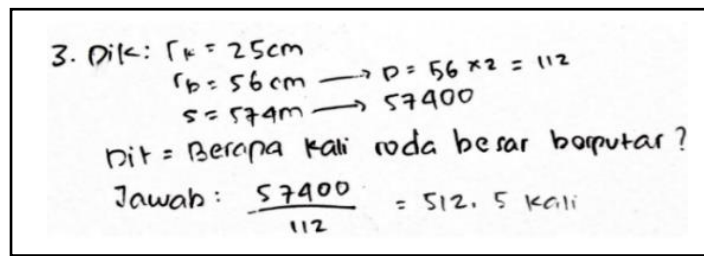 3. Dik: rk = 25cm
rb = 56 cm → D = 56 x 2 = 112
s = 574m → 57400
Dit = Berapa kali roda besar berputar?
Jawab: 57400/112 = 512.5 kali